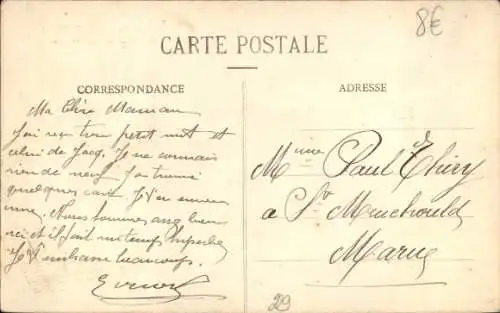 8€
CARTE POSTALE
CORRESPONDANCE
Ma Chère Maman
J'ai reçu ton petit mot et
celui de Jacq. Je ne connais
rien de neuf. J'ai trouvé
quelques cartes Je t'en envoie
une. Nous sommes bien
ici et il fait un temps superbe
Je t'embrasse beaucoup.
ADRESSE
Mme Paul Thiery
a Ste Menehould
Marne
29